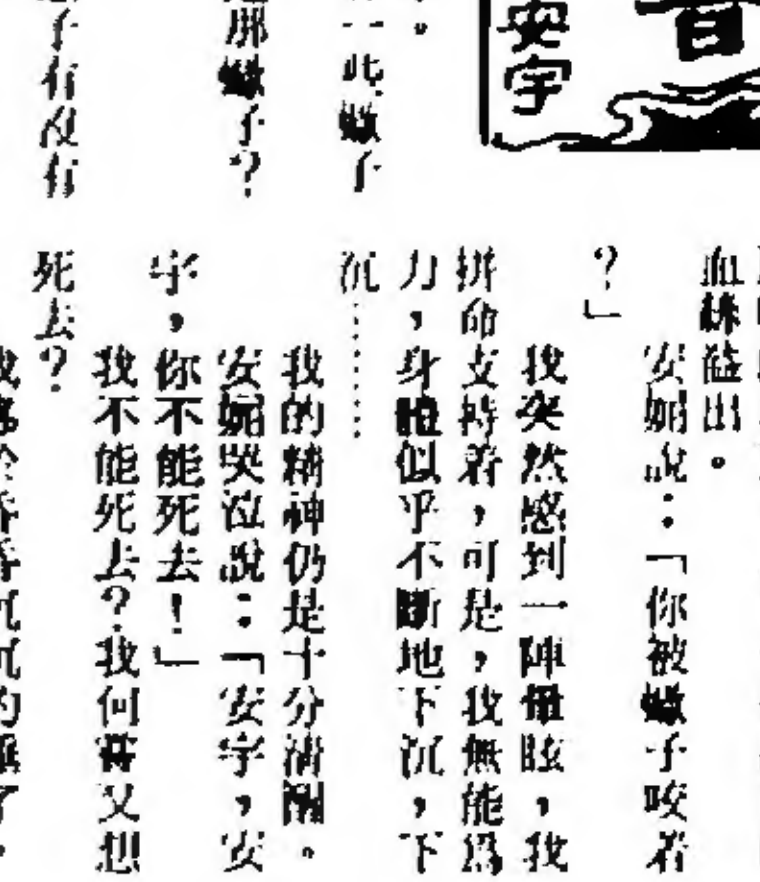 安宇
血絲溢出。
安妮說:「你被蠍子咬着
?」
我突然感到一陣暈眩,我
拼命支持着,可是,我無能爲
力,身體似乎不斷地下沉,下
沉⋯⋯⋯
我的精神仍是十分清醒。
安妮哭泣說:「安宇,安
宇,你不能死去!」
我不能死去?我何嘗又想
死去?
一些蠍子
那蠍子?
子有沒有